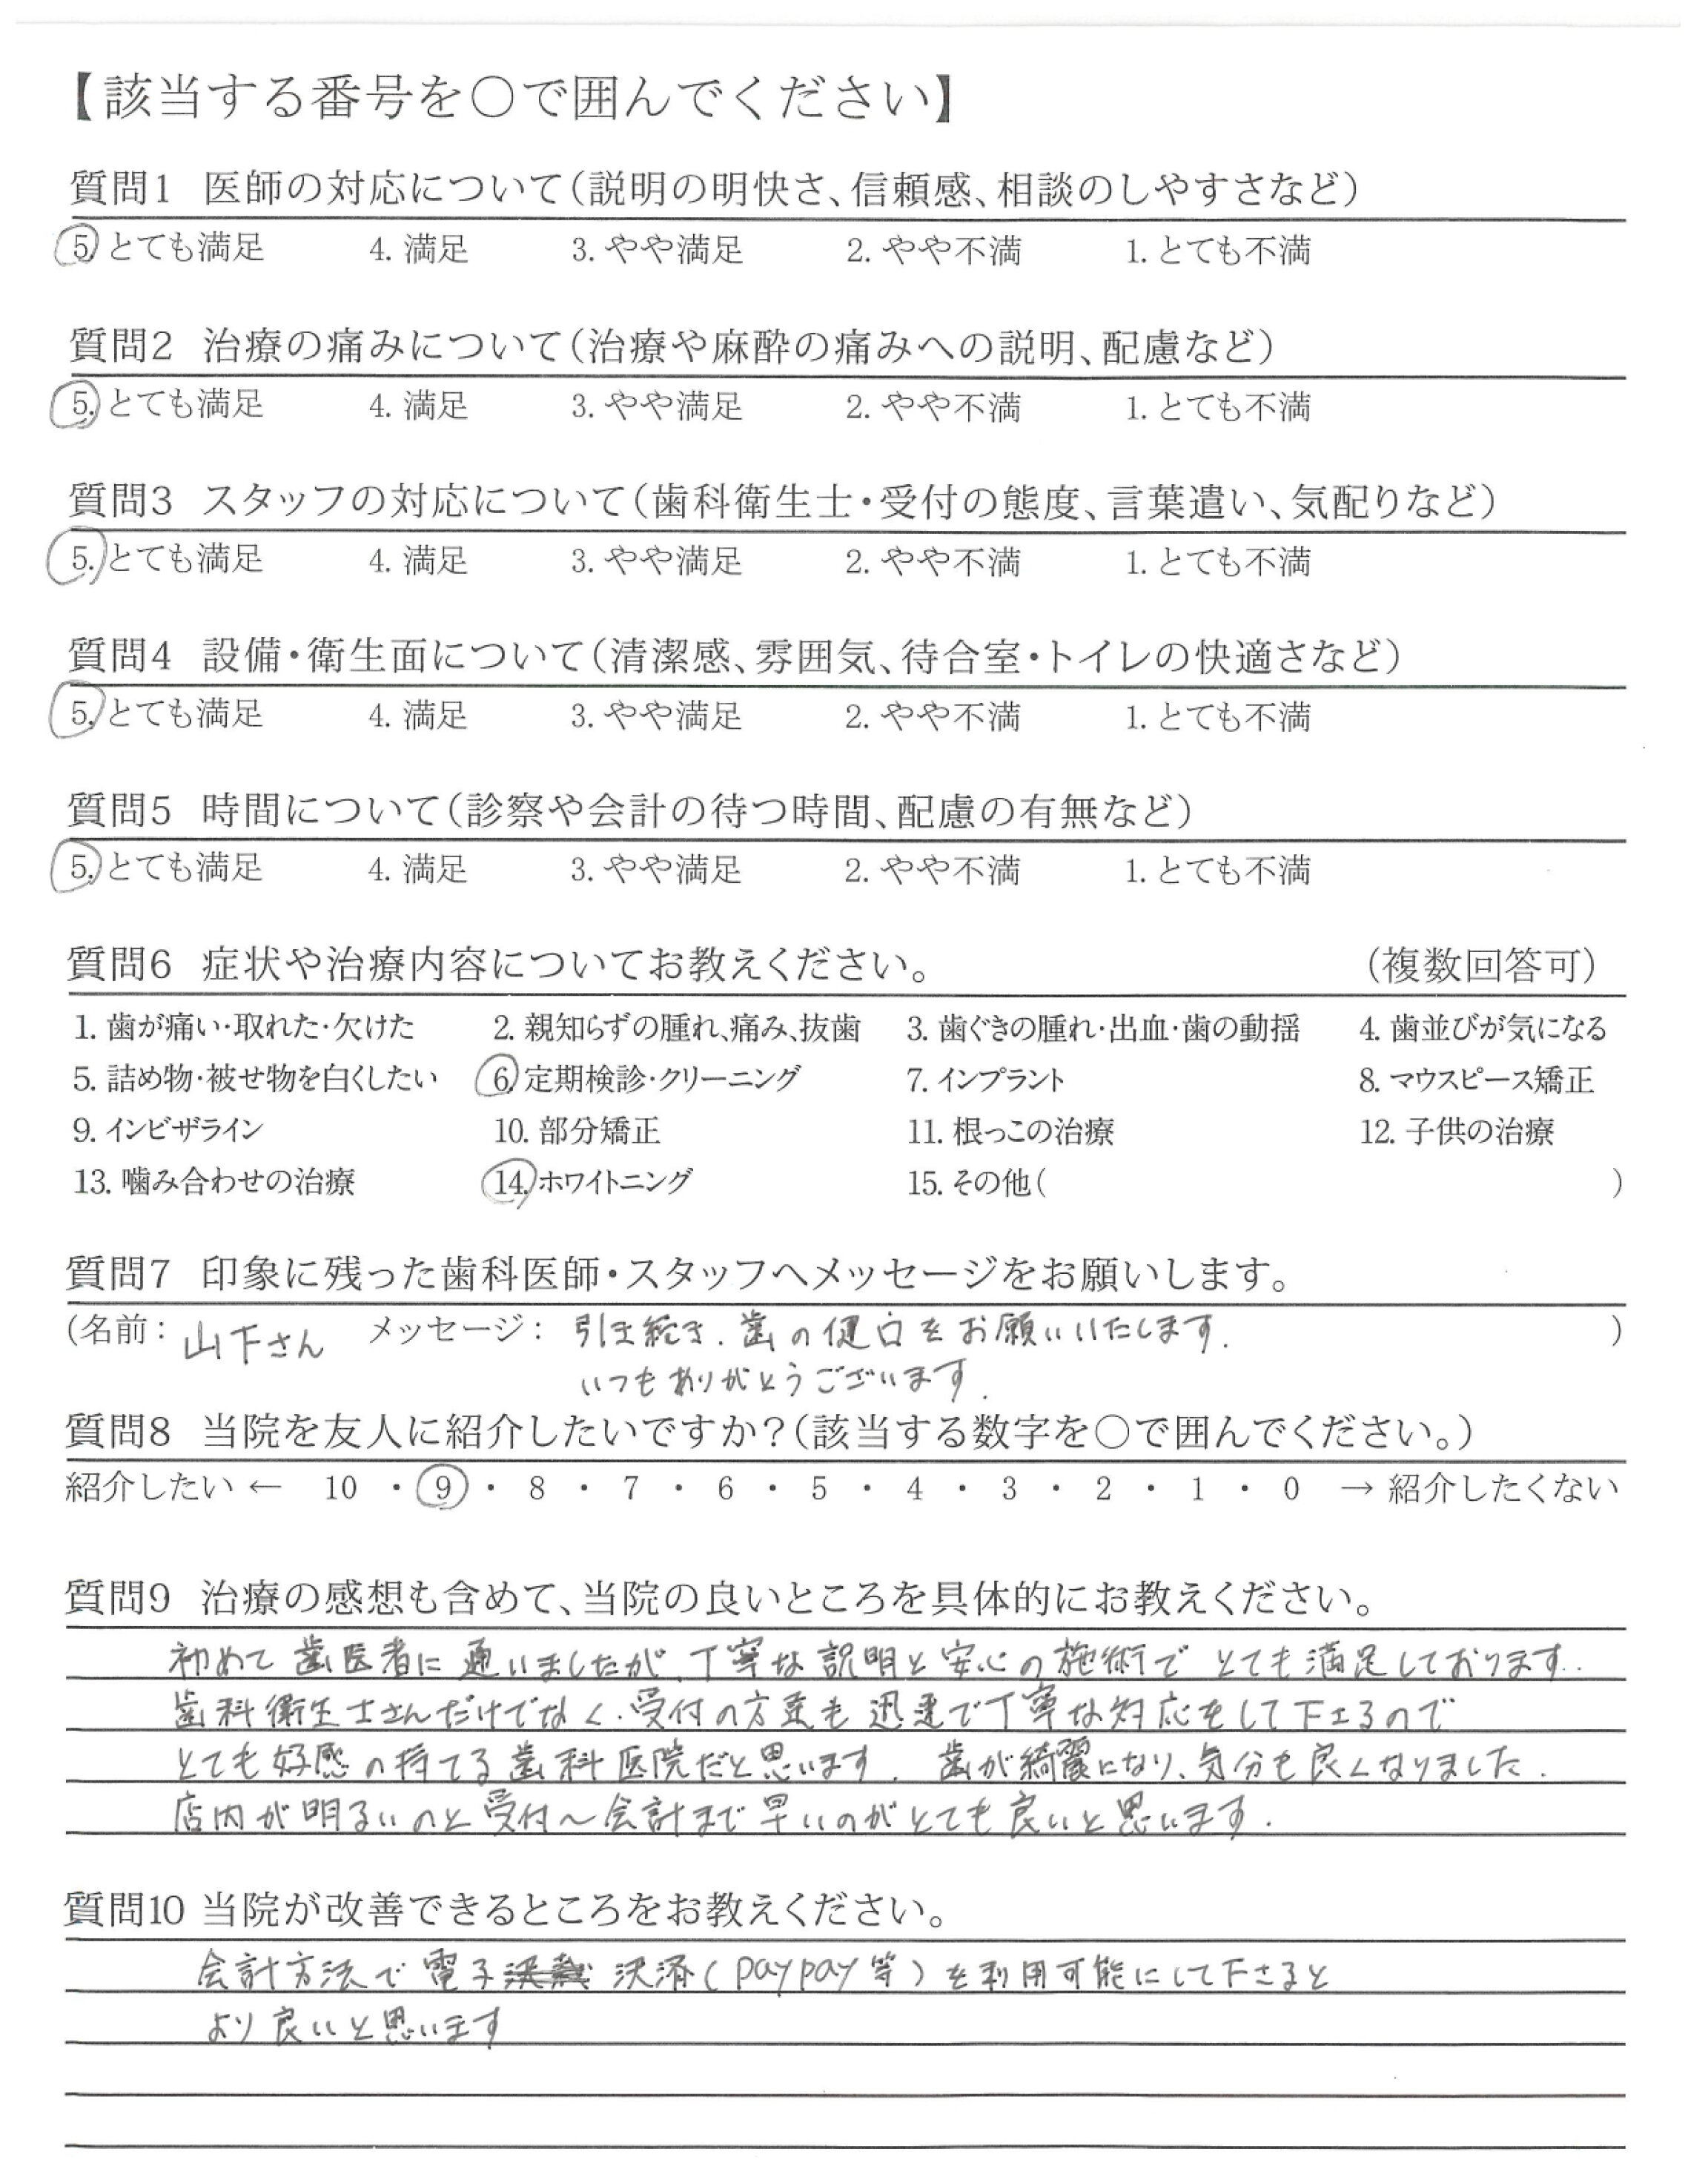 【該当する番号を○で囲んでください】
質問1 医師の対応について(説明の明快さ、信頼感、相談のしやすさなど)
5. とても満足 4. 満足 3. やや満足 2. やや不満 1. とても不満
質問2 治療の痛みについて(治療や麻酔の痛みへの説明、配慮など)
5. とても満足 4. 満足 3. やや満足 2. やや不満 1. とても不満
質問3 スタッフの対応について(歯科衛生士・受付の態度、言葉遣い、気配りなど)
5. とても満足 4. 満足 3. やや満足 2. やや不満 1. とても不満
質問4 設備・衛生面について(清潔感、雰囲気、待合室・トイレの快適さなど)
5. とても満足 4. 満足 3. やや満足 2. やや不満 1. とても不満
質問5 時間について(診察や会計の待つ時間、配慮の有無など)
5. とても満足 4. 満足 3. やや満足 2. やや不満 1. とても不満
質問6 症状や治療内容についてお教えください。 (複数回答可)
1. 歯が痛い・取れた・欠けた 2. 親知らずの腫れ、痛み、抜歯 3. 歯ぐきの腫れ・出血・歯の動揺 4. 歯並びが気になる
5. 詰め物・被せ物を白くしたい 6. 定期検診・クリーニング 7. インプラント 8. マウスピース矯正
9. インビザライン 10. 部分矯正 11. 根っこの治療 12. 子供の治療
13. 噛み合わせの治療 14. ホワイトニング 15. その他( )
質問7 印象に残った歯科医師・スタッフへメッセージをお願いします。
(名前: 山下さん メッセージ: 引き続き、歯の健白をお願いいたします. )
いつもありがとうございます.
質問8 当院を友人に紹介したいですか?(該当する数字を○で囲んでください。)
紹介したい ← 10 ・ 9 ・ 8 ・ 7 ・ 6 ・ 5 ・ 4 ・ 3 ・ 2 ・ 1 ・ 0 → 紹介したくない
質問9 治療の感想も含めて、当院の良いところを具体的にお教えください。
初めて歯医者に通いましたが、丁寧な説明と安心の施術でとても満足しております.
歯科衛生士さんだけでなく、受付の方達も迅速で丁寧な対応をして下さるので
とても好感の持てる歯科医院だと思います. 歯が綺麗になり、気分も良くなりました.
店内が明るいのと受付〜会計まで早いのがとても良いと思います.
質問10 当院が改善できるところをお教えください。
会計方法で電子 決済(paypay等)を利用可能にして下さると
より良いと思います